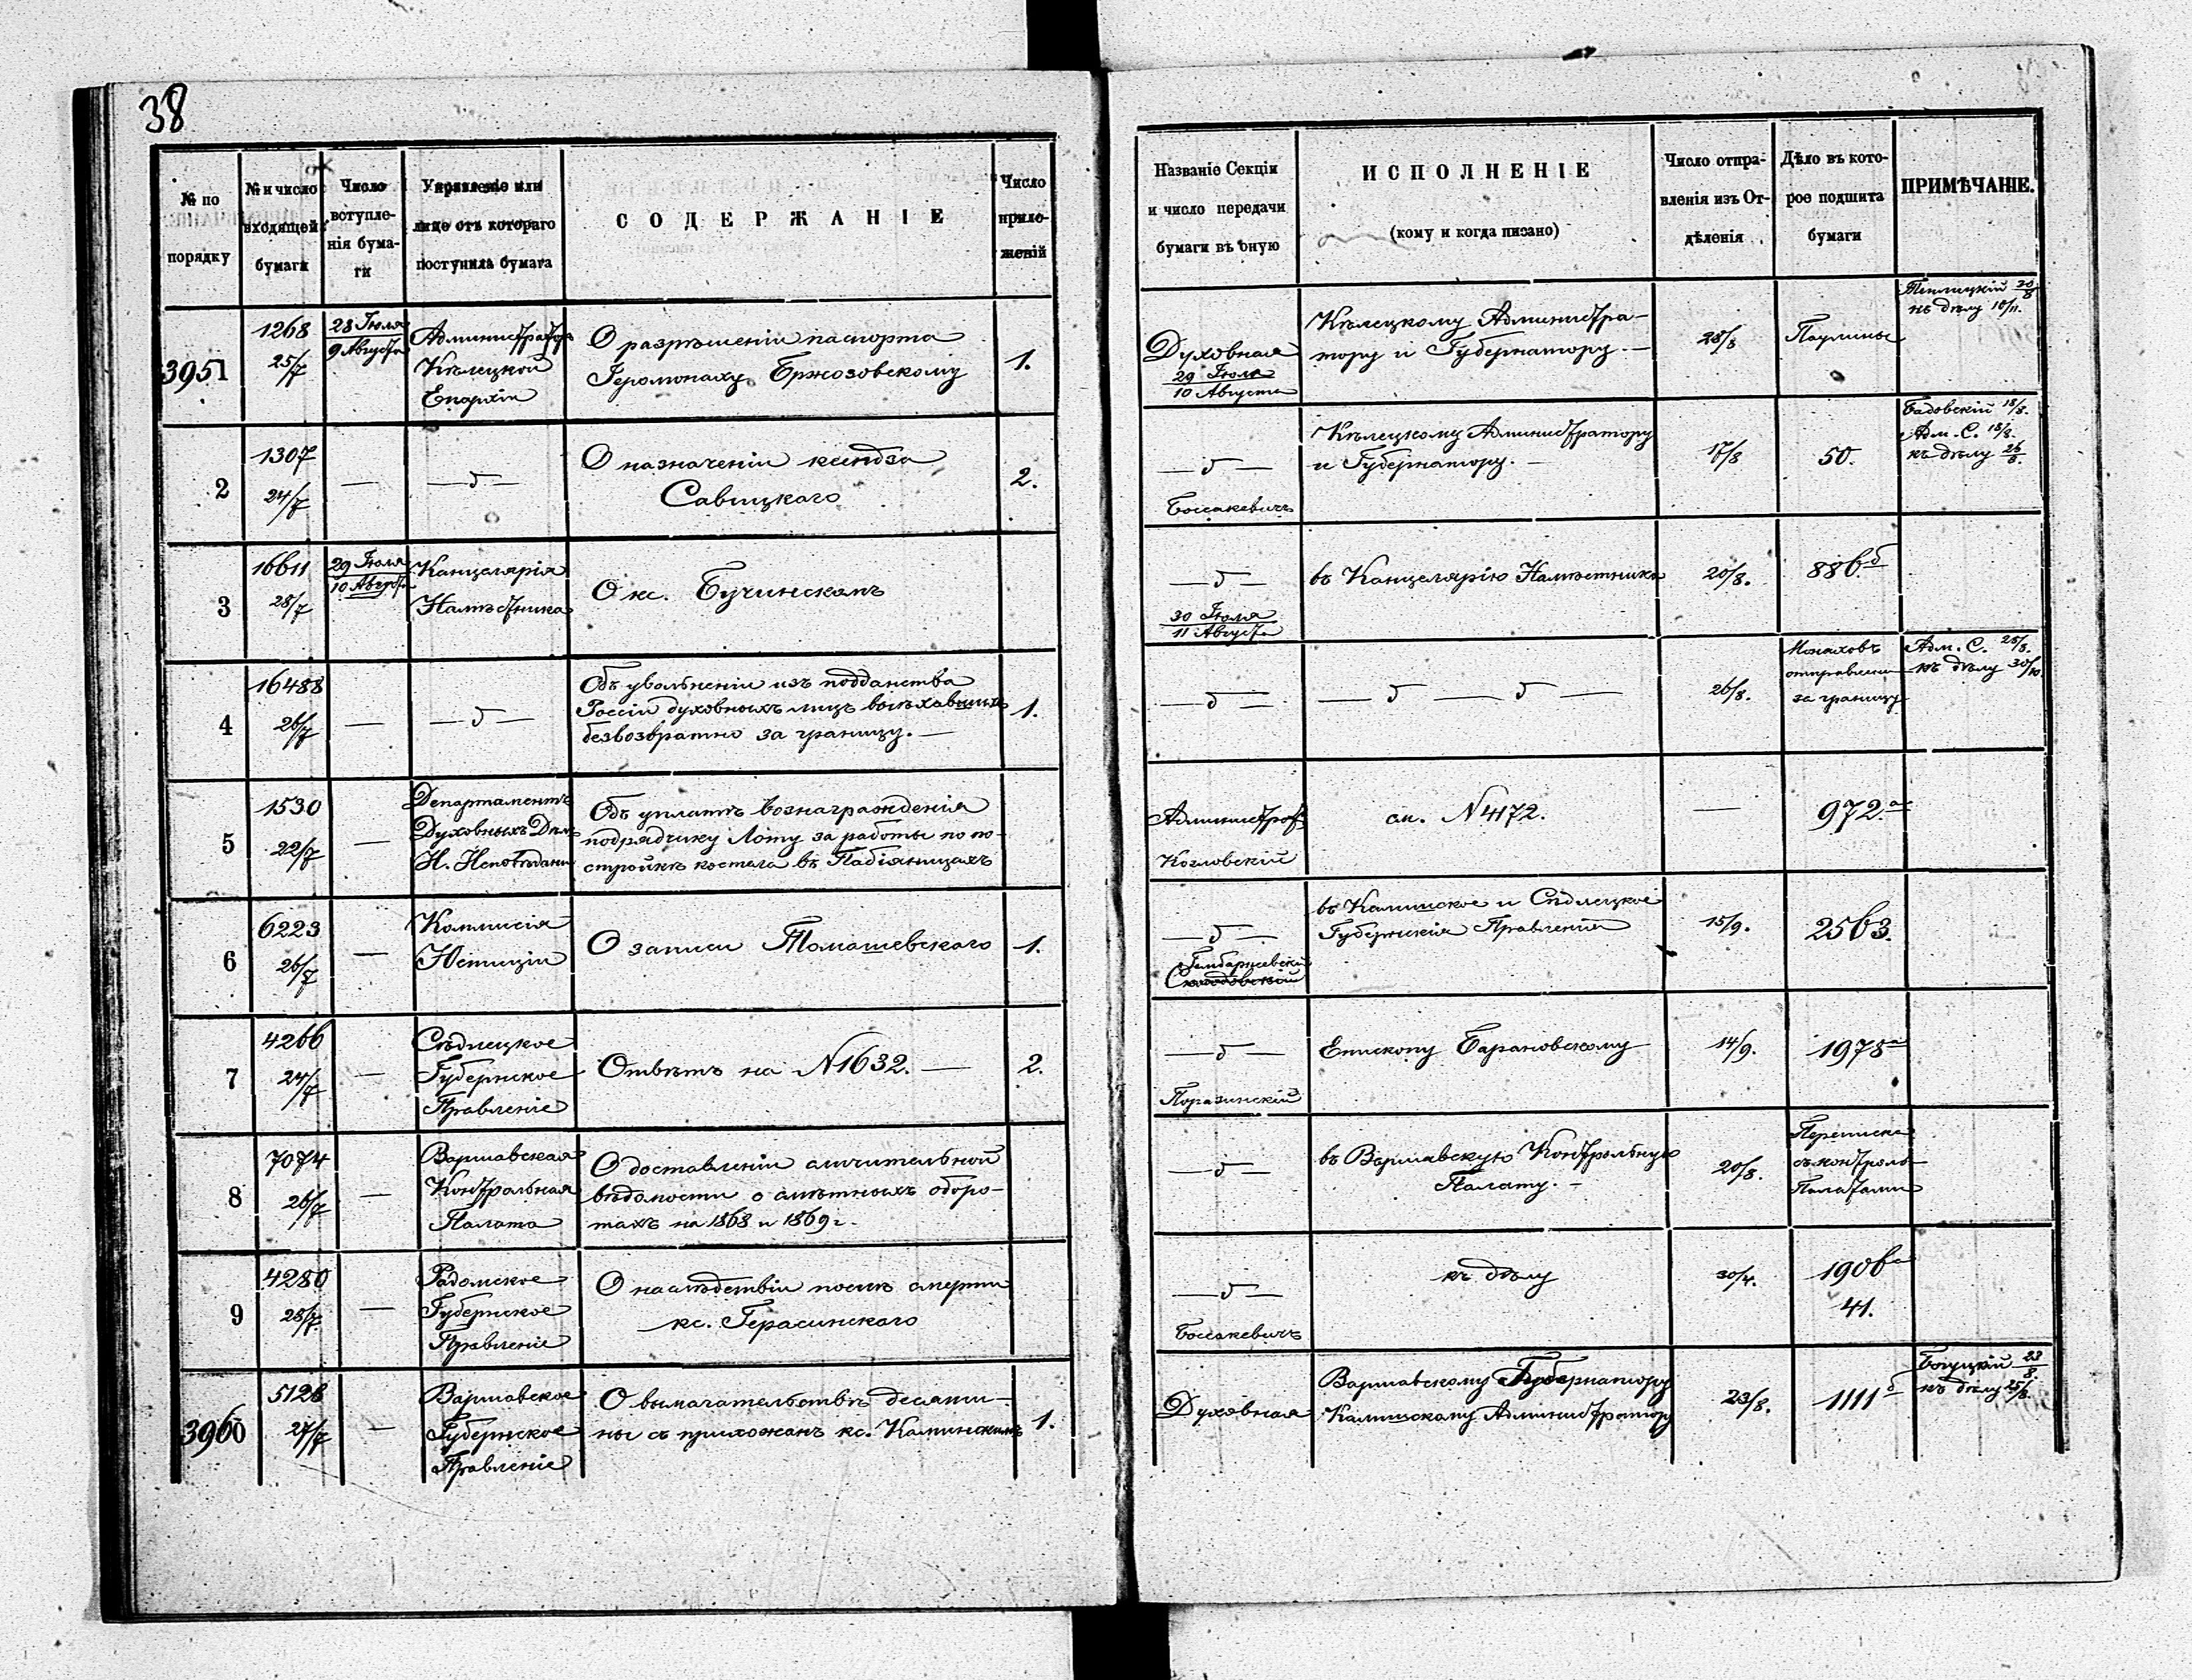 38
№ по порядку
№ и число входящей бумаги
Число вступленія бумаги
Управленіе или лице отъ котораго поступила бумага
СОДЕРЖАНІЕ
Число приложеній
Названіе Секціи и число передачи бумаги въ оную
ИСПОЛНЕНІЕ
(кому и когда писано)
Число отправленія изъ Отдѣленія
Дѣло въ которое подшита бумаги
ПРИМѢЧАНІЕ.
3951
1268
25/7
28 Іюля
9 Августа
Администраторъ
Кѣлецкой
Епархіи
О разрѣшеніи паспорта
Іеромонаху Бржозовскому
1.
Духовная
29 Іюля
10 Августа
Кѣлецкому Администра-
тору и Губернатору. —
28/8
Паулины
30/8
къ дѣлу 10/11.
2
1307
24/7
—
— „ —
О назначеніи ксендза
Савицкаго
2.
— „ —
Кѣлецкому Администратору
и Губернатору. —
17/8
50.
Бадовскій 18/8.
Адм. С. 18/8.
къ дѣлу 26/8.
3
16611
28/7
29 Іюля
10 Августа
Канцелярія
Намѣстника
О кс. Бучинскомъ
— „ —
30 Іюля
11 Августа
въ Канцелярію Намѣстника
20/8.
886.б
4
16488
26/7
—
— „ —
Объ увольненіи изъ подданства
Россіи духовныхъ лицъ выѣхавшихъ
безвозвратно за границу. —
1.
— „ —
— „ — „ —
26/8.
Монаховъ
отправлени
за границу
Адм. С. 28/8.
къ дѣлу 30/10.
5
1530
22/7
—
Департаментъ
Духовныхъ Дѣлъ
И. Исповѣданій
Объ уплатѣ вознагражденія
подрядчику Лоту за работы по по-
стройкѣ костела въ Пабіяницахъ
Администрат.
Козловскій
см. N 4172.
—
972.а
6
6223
26/7
—
Коммисія
Юстиціи
О записи Томашевскаго
1.
— „ —
въ Калишское и Сѣдлецкое
Губернскія Правленія
15/9.
2563.
7
4266
24/7
—
Сѣдлецкое
Губернское
Правленіе
Отвѣтъ на N 1632. —
2.
— „ —
Поразинскій
Епископу Барановскому
14/9.
1978а
8
7074
26/7
—
Варшавская
Контрольная
Палата
О доставленіи сличительной
вѣдомости о смѣтныхъ оборо-
тахъ на 1868 и 1869 г.
— „ —
въ Варшавскую Контрольную
Палату. —
20/8.
Переписка
съ контроль.
Палатами
9
4280
28/7
—
Радомское
Губернское
Правленіе
О наслѣдствіи послѣ смерти
кс. Герасинскаго
— „ —
къ дѣлу
30/4.
1906а
41.
3960
5128
27/7
—
Варшавское
Губернское
Правленіе
О вымагательствѣ десяти-
ны съ прихожанъ кс. Каминскимъ
1.
Духовная
Варшавскому Губернатору
Калишскому Администратору
23/8.
1111б
Богуцкій 23/8.
къ дѣлу 25/8.